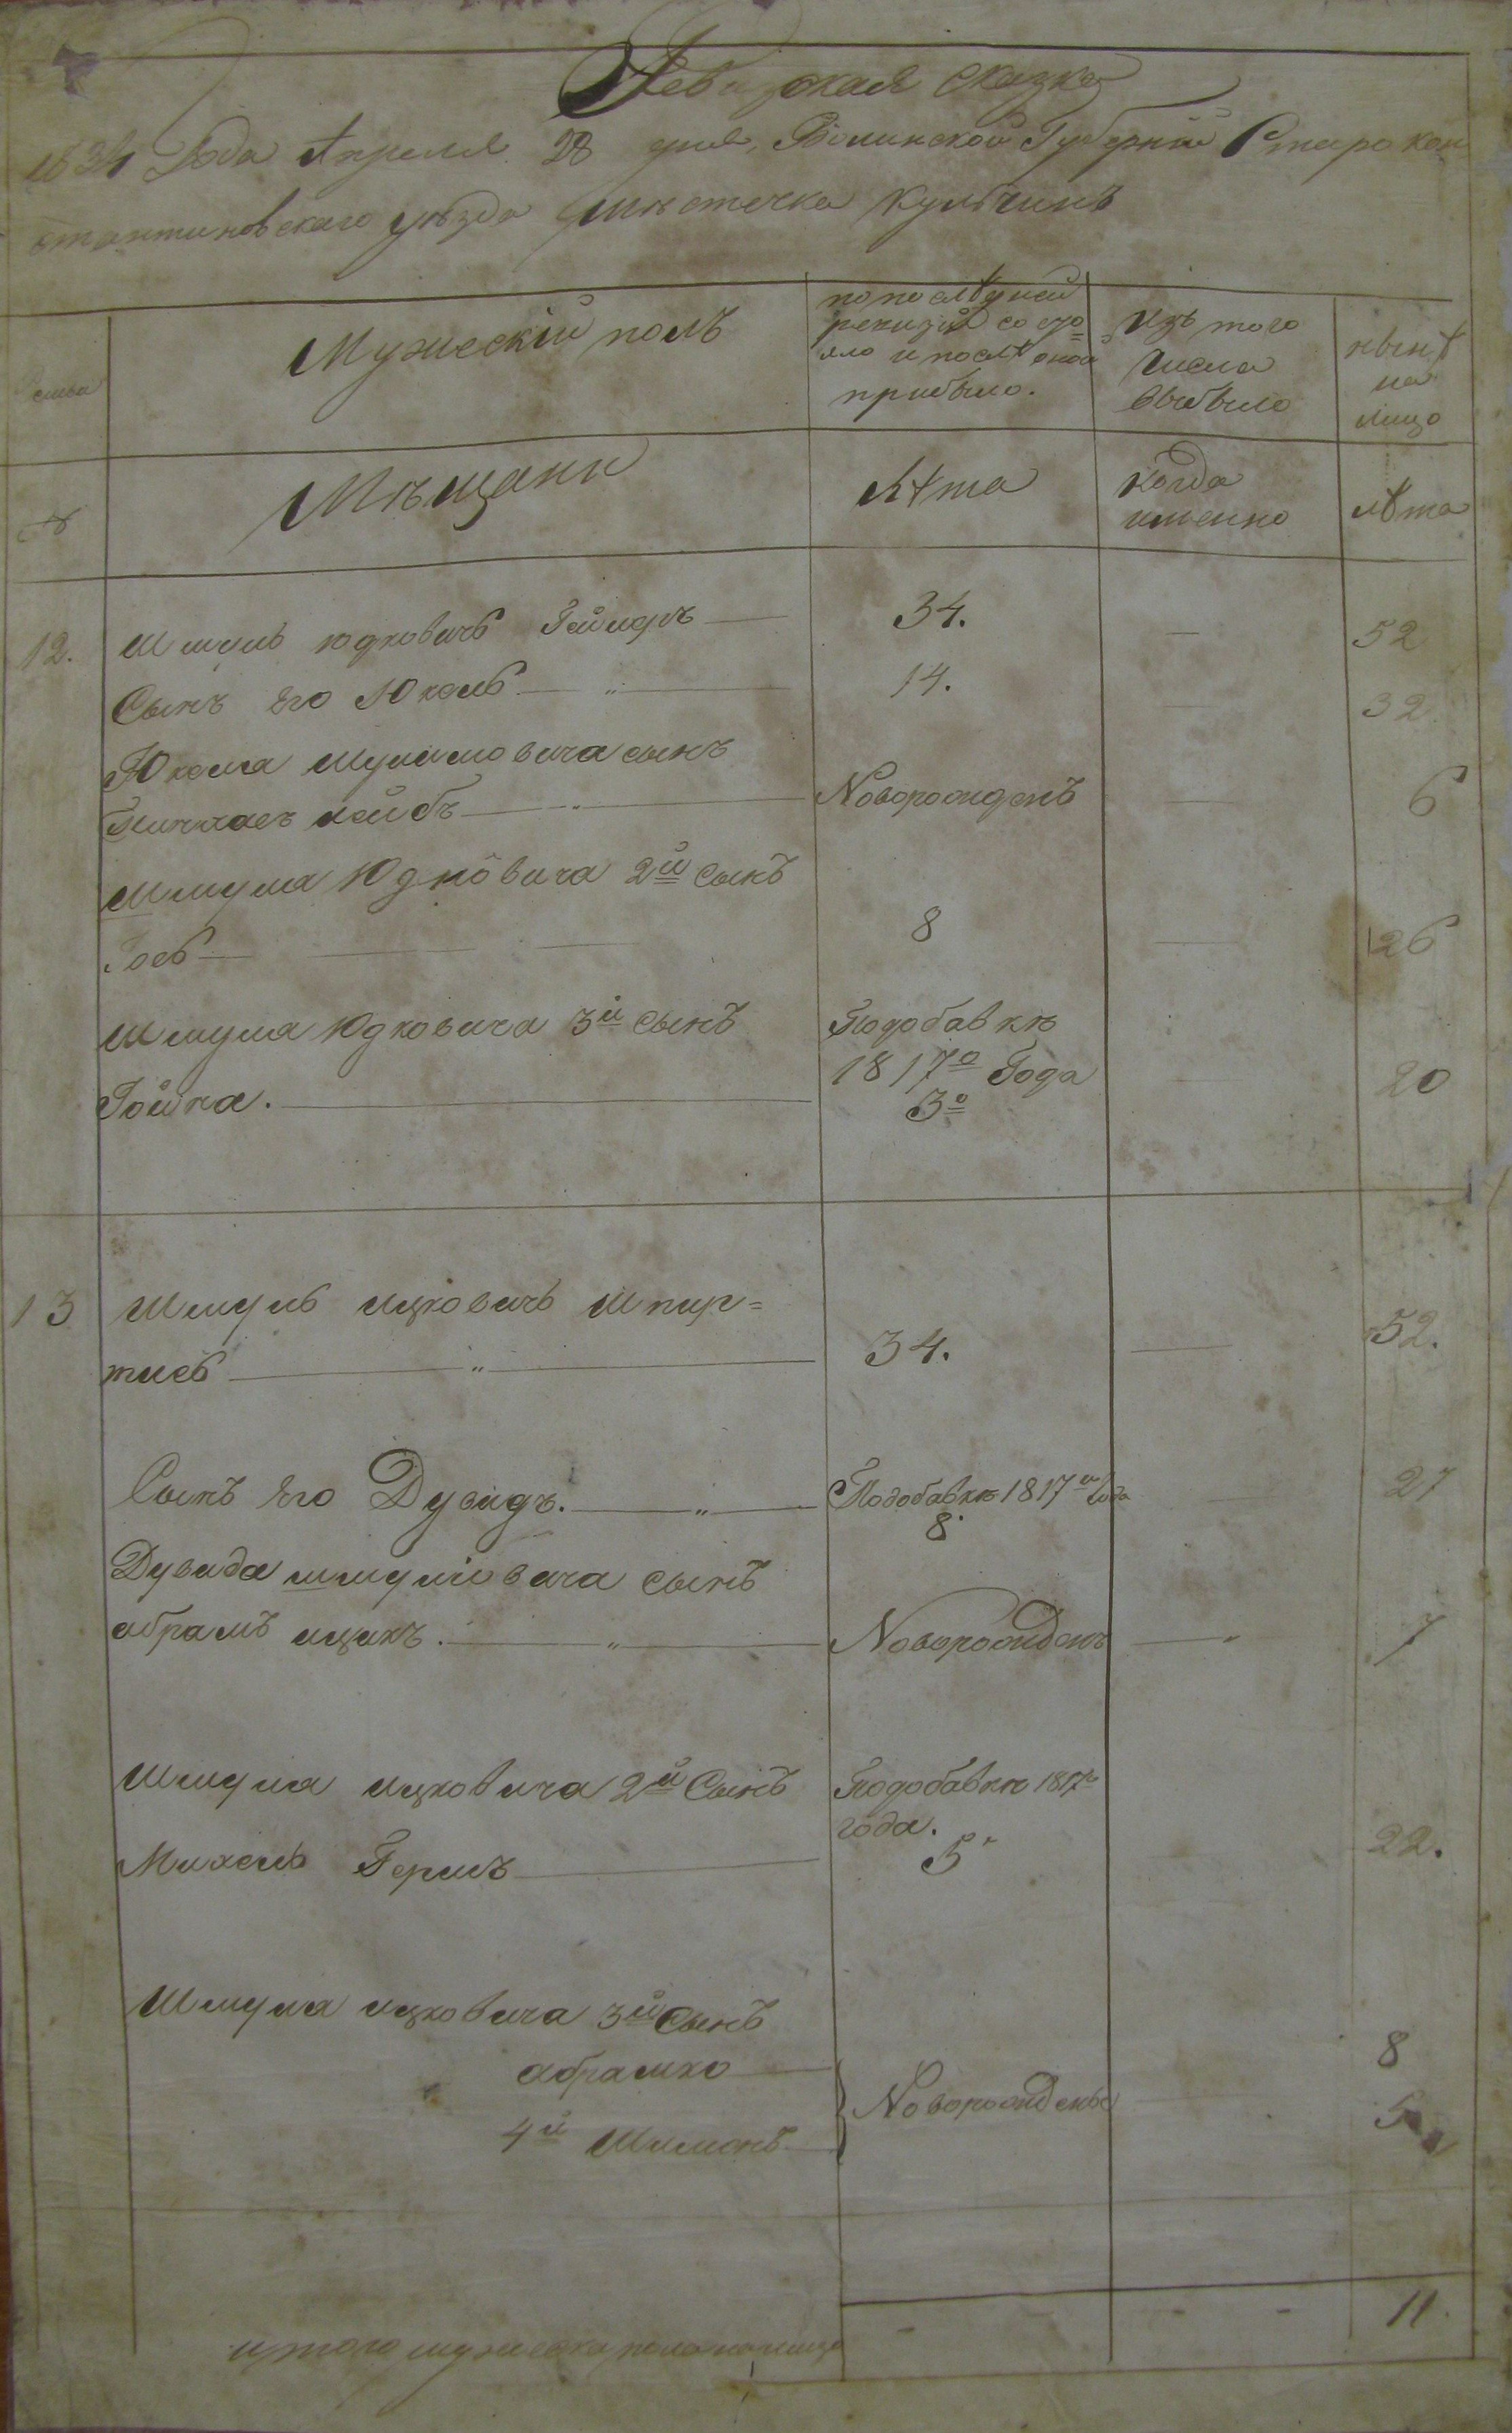 Ревизская сказка
1834 Года Апреля 28 дня, Волинской Губерніи Старокон
стантиновскаго уѣзда мѣстечка Кульчинъ
Мужескій полъ
по послѣдней
ревизіи состо=
яло и послѣ оной
прибыло.
Изъ того
числа
выбыло
нынѣ
на
лицо
Мѣщани
Лѣта
когда
именно
лѣта
12. Шмуль Юдковичъ 34. — 52
Сынъ его Юкель — " — 14. — 32
Юкеля Шмулиовича сынъ
Пинхасъ Лейбъ — " — Новорожденъ — 6
Шмуля Юдковича 2й сынъ
Іосъ — 8 — 26
Шмуля Юдковича 3й сынъ
Подобавкѣ
1817го Года
Гойна. — 3о — 20
13 Шмуль Ицковичъ Шпир=
тисъ — " — 34. — 52.
Сынъ его Дувидъ. — " — Подобавкѣ 1817го Года
8. 27
Дувида Шмуліовича сынъ
Абрамъ Ицикъ. — " — Новорожденъ — " 7
Шмуля Ицковича 2й Сынъ Подобавкѣ 1817го
года.
Михель Гершъ — 5 22.
Шмуля Ицковича 3й Сынъ
Абрамко — 8
Новорожденые
4й Шимонъ — 5
итого мужеска пола налицо - - - 11.